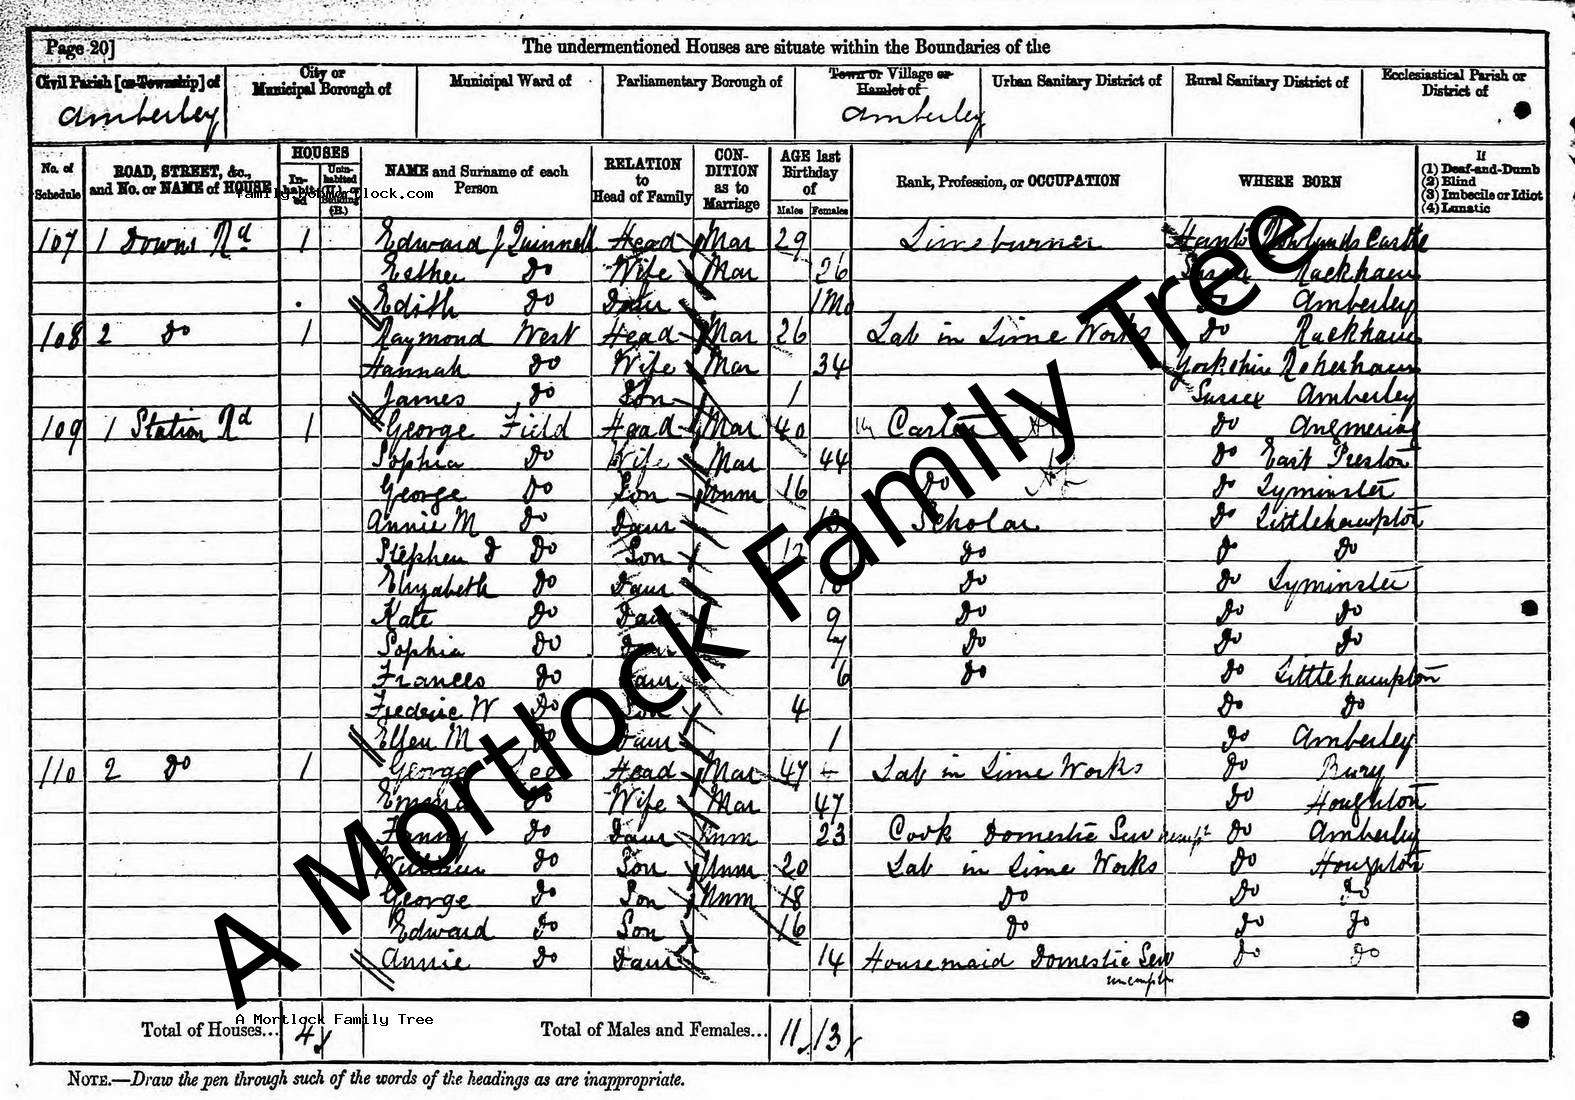 Page 20]
The undermentioned Houses are situate within the Boundaries of the
Civil Parish [or Township] of
City or Municipal Borough of
Municipal Ward of
Parliamentary Borough of
Town or Village or Hamlet of
Urban Sanitary District of
Rural Sanitary District of
Ecclesiastical Parish or District of
Amberley
Amberley
No. of Schedule
ROAD, STREET, &c., and No. or NAME of HOUSE
HOUSES
In-habit-ed
NAME and Surname of each Person
RELATION to Head of Family
CON-DITION as to Marriage
AGE last Birthday of
Males
Females
Rank, Profession, or OCCUPATION
WHERE BORN
If
(1) Deaf-and-Dumb
(2) Blind
(3) Imbecile or Idiot
(4) Lunatic
family.gebmortlock.com
107 1 Downs Rd 1 Edward J Quinnell Head Mar 29 Limeburner Hants Rowlands Castle
Esther Do Wife Mar 26 Sussex Rackham
Edith Do Daur 1 Mo Do Amberley
108 2 Do 1 Raymond West Head Mar 26 Lab in Lime Works Do Rackham
Hannah Do Wife Mar 34 Yorkshire
James Do Son 1 Sussex Amberley
109 1 Station Rd 1 George Field Head Mar 40 Carter Do Angmering
Sophia Do Wife Mar 44 Do East Preston
George Do Son Unm 16 Do Do Lyminster
Annie M Do Daur 13 Scholar Do Littlehampton
Stephen J Do Son 12 Do Do Do
Elizabeth Do Daur 10 Do Do Lyminster
Kate Do Daur 9 Do Do Do
Sophia Do Daur 7 Do Do Do
Frances Do Daur 6 Do Do Littlehampton
Frederic W Do Son 4 Do Do
Ellen M Do Daur 1 Do Amberley
110 2 Do 1 George Lee Head Mar 47 Lab in Lime Works Do Bury
Emma Do Wife Mar 47 Do Houghton
Fanny Do Daur Unm 23 Cook Domestic Serv unempd Do Amberley
William Do Son Unm 20 Lab in Lime Works Do Houghton
George Do Son Unm 18 Do Do Do
Edward Do Son 16 Do Do Do
Annie Do Daur 14 Housemaid Domestic Serv Do Do
A Mortlock Family Tree
A Mortlock Family Tree
Total of Houses... 4
Total of Males and Females... 11 13
NOTE.—Draw the pen through such of the words of the headings as are inappropriate.